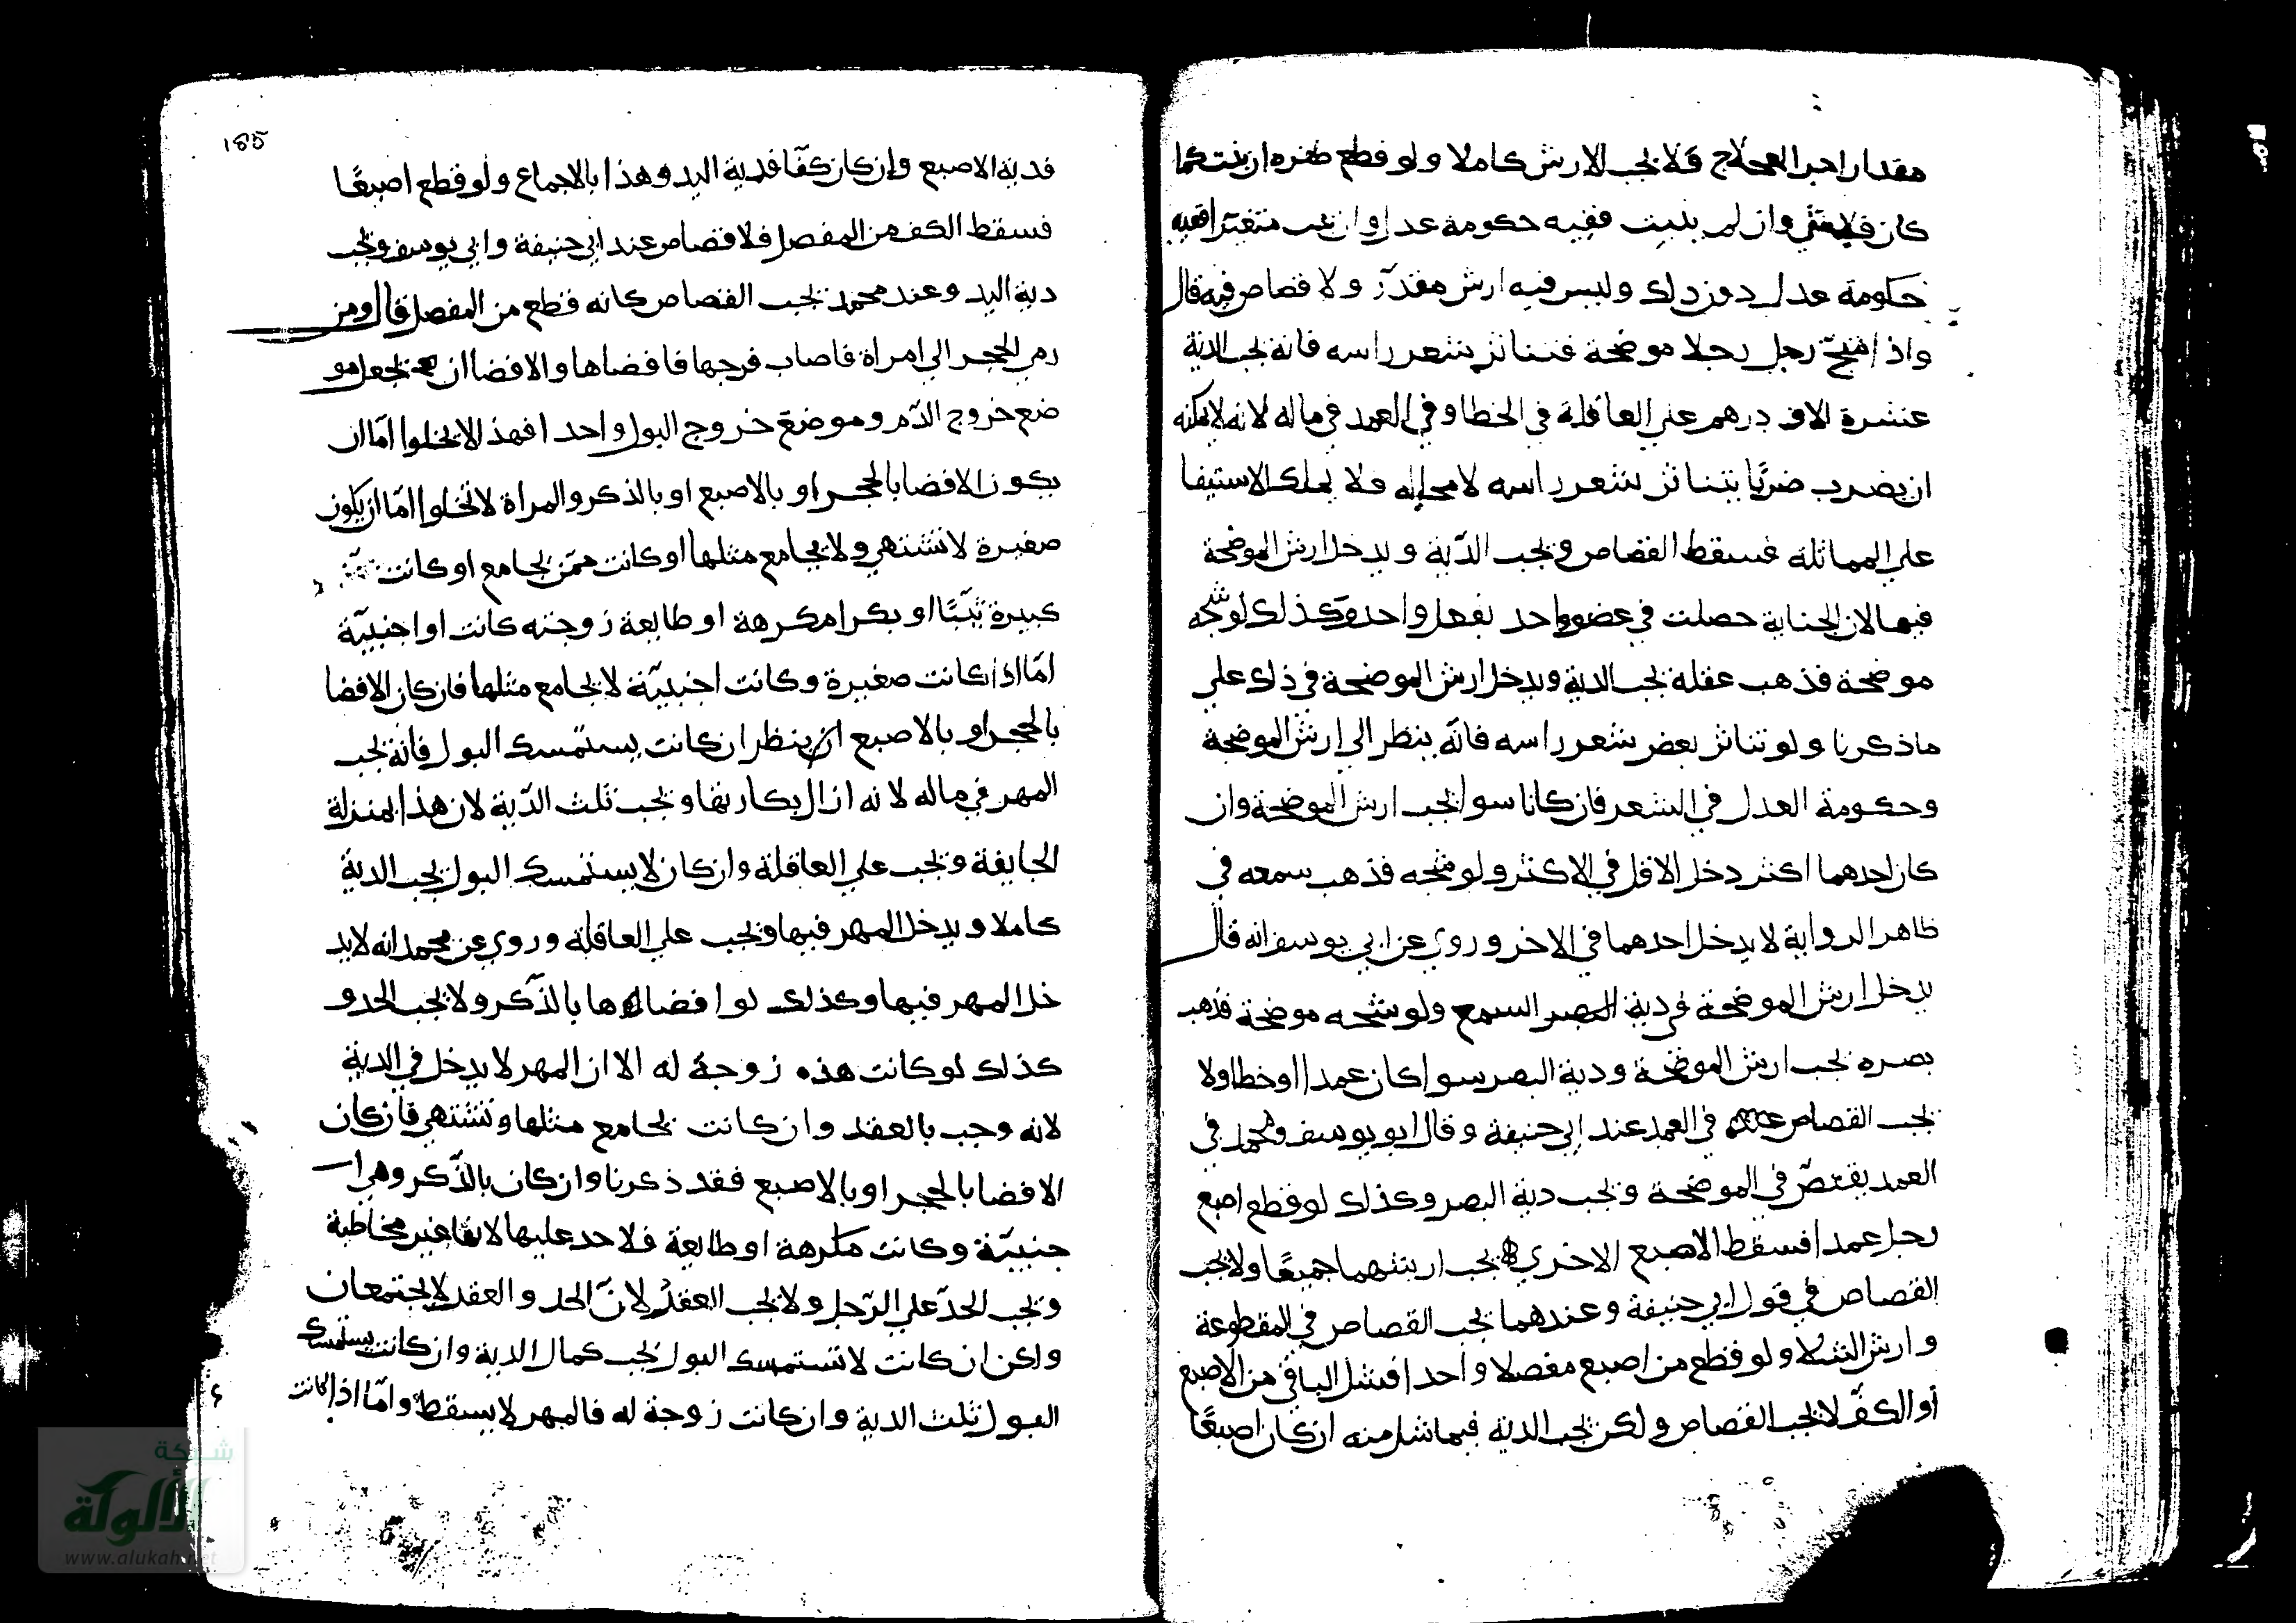 مقدار اجر العلاج فلا يجب الارش كاملا ولو قطع ظفره ان نبت كما
كان فلا شي وان لم ينبت ففيه حكومة عدل وان نبت متغيرا ففيه
حكومة عدل دون ذلك وليس فيه ارش مقدر ولا قصاص فيه قال
واذا شج رجل رجلا موضحة فتناثر شعر راسه فانه يجب الدية
عشرة الاف درهم علي العاقلة في الخطا وفي العمد في ماله لانه لا يمكنه
ان يضرب ضربًا يتناثر شعر راسه لا محاله فلا يملك الاستيفا
علي المماثلة فسقط القصاص ويجب الدّية ويدخل ارش الموضحة
فيها لان الجناية حصلت في عضو واحد بفعل واحد وكذلك لو شجه
موضحة فذهب عقله يجب الدية ويدخل ارش الموضحة في ذلك علي
ماذكرنا ولو تناثر بعض شعر راسه فانّه ينظر الي ارش الموضحة
وحكومة العدل في الشعر فان كانا سوا يجب ارش الموضحة وان
كان احدهما اكثر دخل الاقل في الاكثر ولو شجه فذهب سمعه في
ظاهر الرواية لا يدخل احدهما في الاخر وروي عن ابي يوسف انه قال
يدخل ارش الموضحة في دية السمع ولو شجه موضحة فذهب
بصره يجب ارش الموضحة ودية البصر سوا كان عمدا او خطا ولا
يجب القصاص في العمد عند ابي حنيفة وقال ابو يوسف ومحمد في
العمد يقتصّ في الموضحة ويجب دية البصر وكذلك لو قطع اصبع
رجل عمدا فسقط الاصبع الاخري يجب ارشهما جميعًا ولا يجب
القصاص في قول ابي حنيفة وعندهما يجب القصاص في المقطوعة
وارش الشلا ولو قطع من اصبع مفصلا واحدا فشل الباقي من الاصبع
أو الكفّ لا يجب القصاص ولكن يجب الدية فيما شل منه ان كان اصبعًا
185
فدية الاصبع وان كان كفّا فدية اليد وهذا بالاجماع ولو قطع اصبعًا
فسقط الكف من المفصل فلا قصاص عند ابي حنيفة وابي يوسف ويجب
دية اليد وعند محمد يجب القصاص كانه قطع من المفصل قال ومن
رمي الحجر الي امراة فاصاب فرجها فافضاها والافضا ان يجعل مو
ضع خروج الدّم وموضع خروج البول واحدا فهذا لا يخلوا امّا ان
يكون الافضا بالحجر او بالاصبع او بالذكر والمراة لا تخلوا امّا ان يكون
صغيرة لا تشتهي ولا يجامع مثلها او كانت ممّن يجامع او كانت
كبيرة ثيّبًا او بكرا مكرهة او طايعة زوجته كانت او اجنبيّة
امّا اذا كانت صغيرة وكانت اجنبيّة لا يجامع مثلها فان كان الافضا
بالحجر او بالاصبع ينظر ان كانت يستمسك البول فانه يجب
المهر في ماله لانه ازال بكارتها ويجب ثلث الدّية لان هذا بمنزلة
الجايفة ويجب علي العاقلة وان كان لا يستمسك البول يجب الدية
كاملا ويدخل المهر فيها ويجب علي العاقلة وروي عن محمد انه لا يد
خل المهر فيها وكذلك لو افضاها بالذّكر ولا يجب الحد و
كذلك لو كانت هذه زوجة له الا ان المهر لا يدخل في الدية
لانه وجب بالعقد وان كانت يجامع مثلها وتشتهي فان كان
الافضا بالحجر او بالاصبع فقد ذكرنا وان كان بالذّكر وهي ا
جنبيّة وكانت مكرهة او طايعة فلا حد عليها لانها غير مخاطبة
ويجب الحدّ علي الرّجل ولا يجب العقد لانّ الحد و العقد لا يجتمعان
ولكن ان كانت لا تستمسك البول يجب كمال الدية وان كانت يستمسك
البول ثلث الدية وان كانت زوجة له فالمهر لا يسقط وامّا اذا كانت
شبكة
الألوكة
www.alukah.net